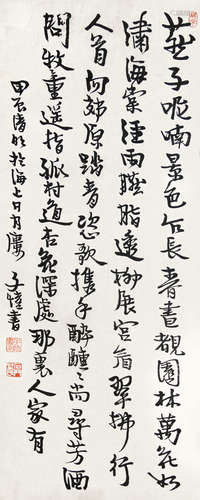 燕子呢喃景色乍長春晝覩園林萬花如
繡海棠經雨臙脂透柳展宮眉翠拂行
人首向郊原踏青恣歌攜手醉醺々尚尋芳酒
問牧童遙指孤村道杏花深處那裏人家有
甲辰清明於海上日月樓 子愷書